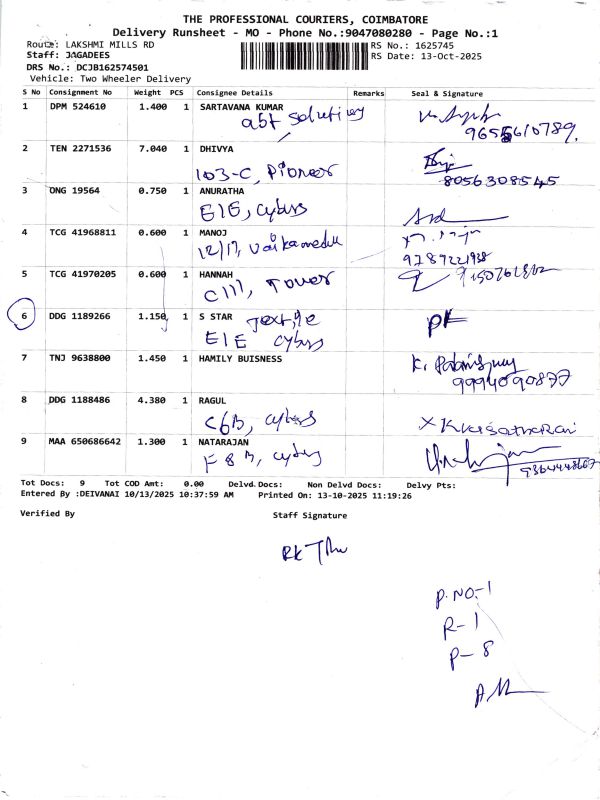 THE PROFESSIONAL COURIERS, COIMBATORE
Delivery Runsheet - MO - Phone No.:9047080280 - Page No.:1
Route: LAKSHMI MILLS RD
RS No.: 1625745
Staff: JAGADEES
RS Date: 13-Oct-2025
DRS No.: DCJB162574501
Vehicle: Two Wheeler Delivery
S No Consignment No Weight PCS Consignee Details Remarks Seal & Signature
1 DPM 524610 1.400 1 SARTAVANA KUMAR
abt solutions
9655610789.
2 TEN 2271536 7.040 1 DHIVYA
103-C, Pioneer
8056308545
3 ONG 19564 0.750 1 ANURATHA
E1E, Cybers
4 TCG 41968811 0.600 1 MANOJ
12/17,
9787221938
5 TCG 41970205 0.600 1 HANNAH
C111, Tower
6 DDG 1189266 1.150 1 S STAR Textile
E1E Cybers
7 TNJ 9638800 1.450 1 HAMILY BUISNESS
K.
9994090877
8 DDG 1188486 4.380 1 RAGUL
C6B, Cybers
9 MAA 650686642 1.300 1 NATARAJAN
F8B, Cybers
9364448667
Tot Docs: 9 Tot COD Amt: 0.00 Delvd Docs: Non Delvd Docs: Delvy Pts:
Entered By :DEIVANAI 10/13/2025 10:37:59 AM Printed On: 13-10-2025 11:19:26
Verified By Staff Signature
P.NO-1
R-1
P-8